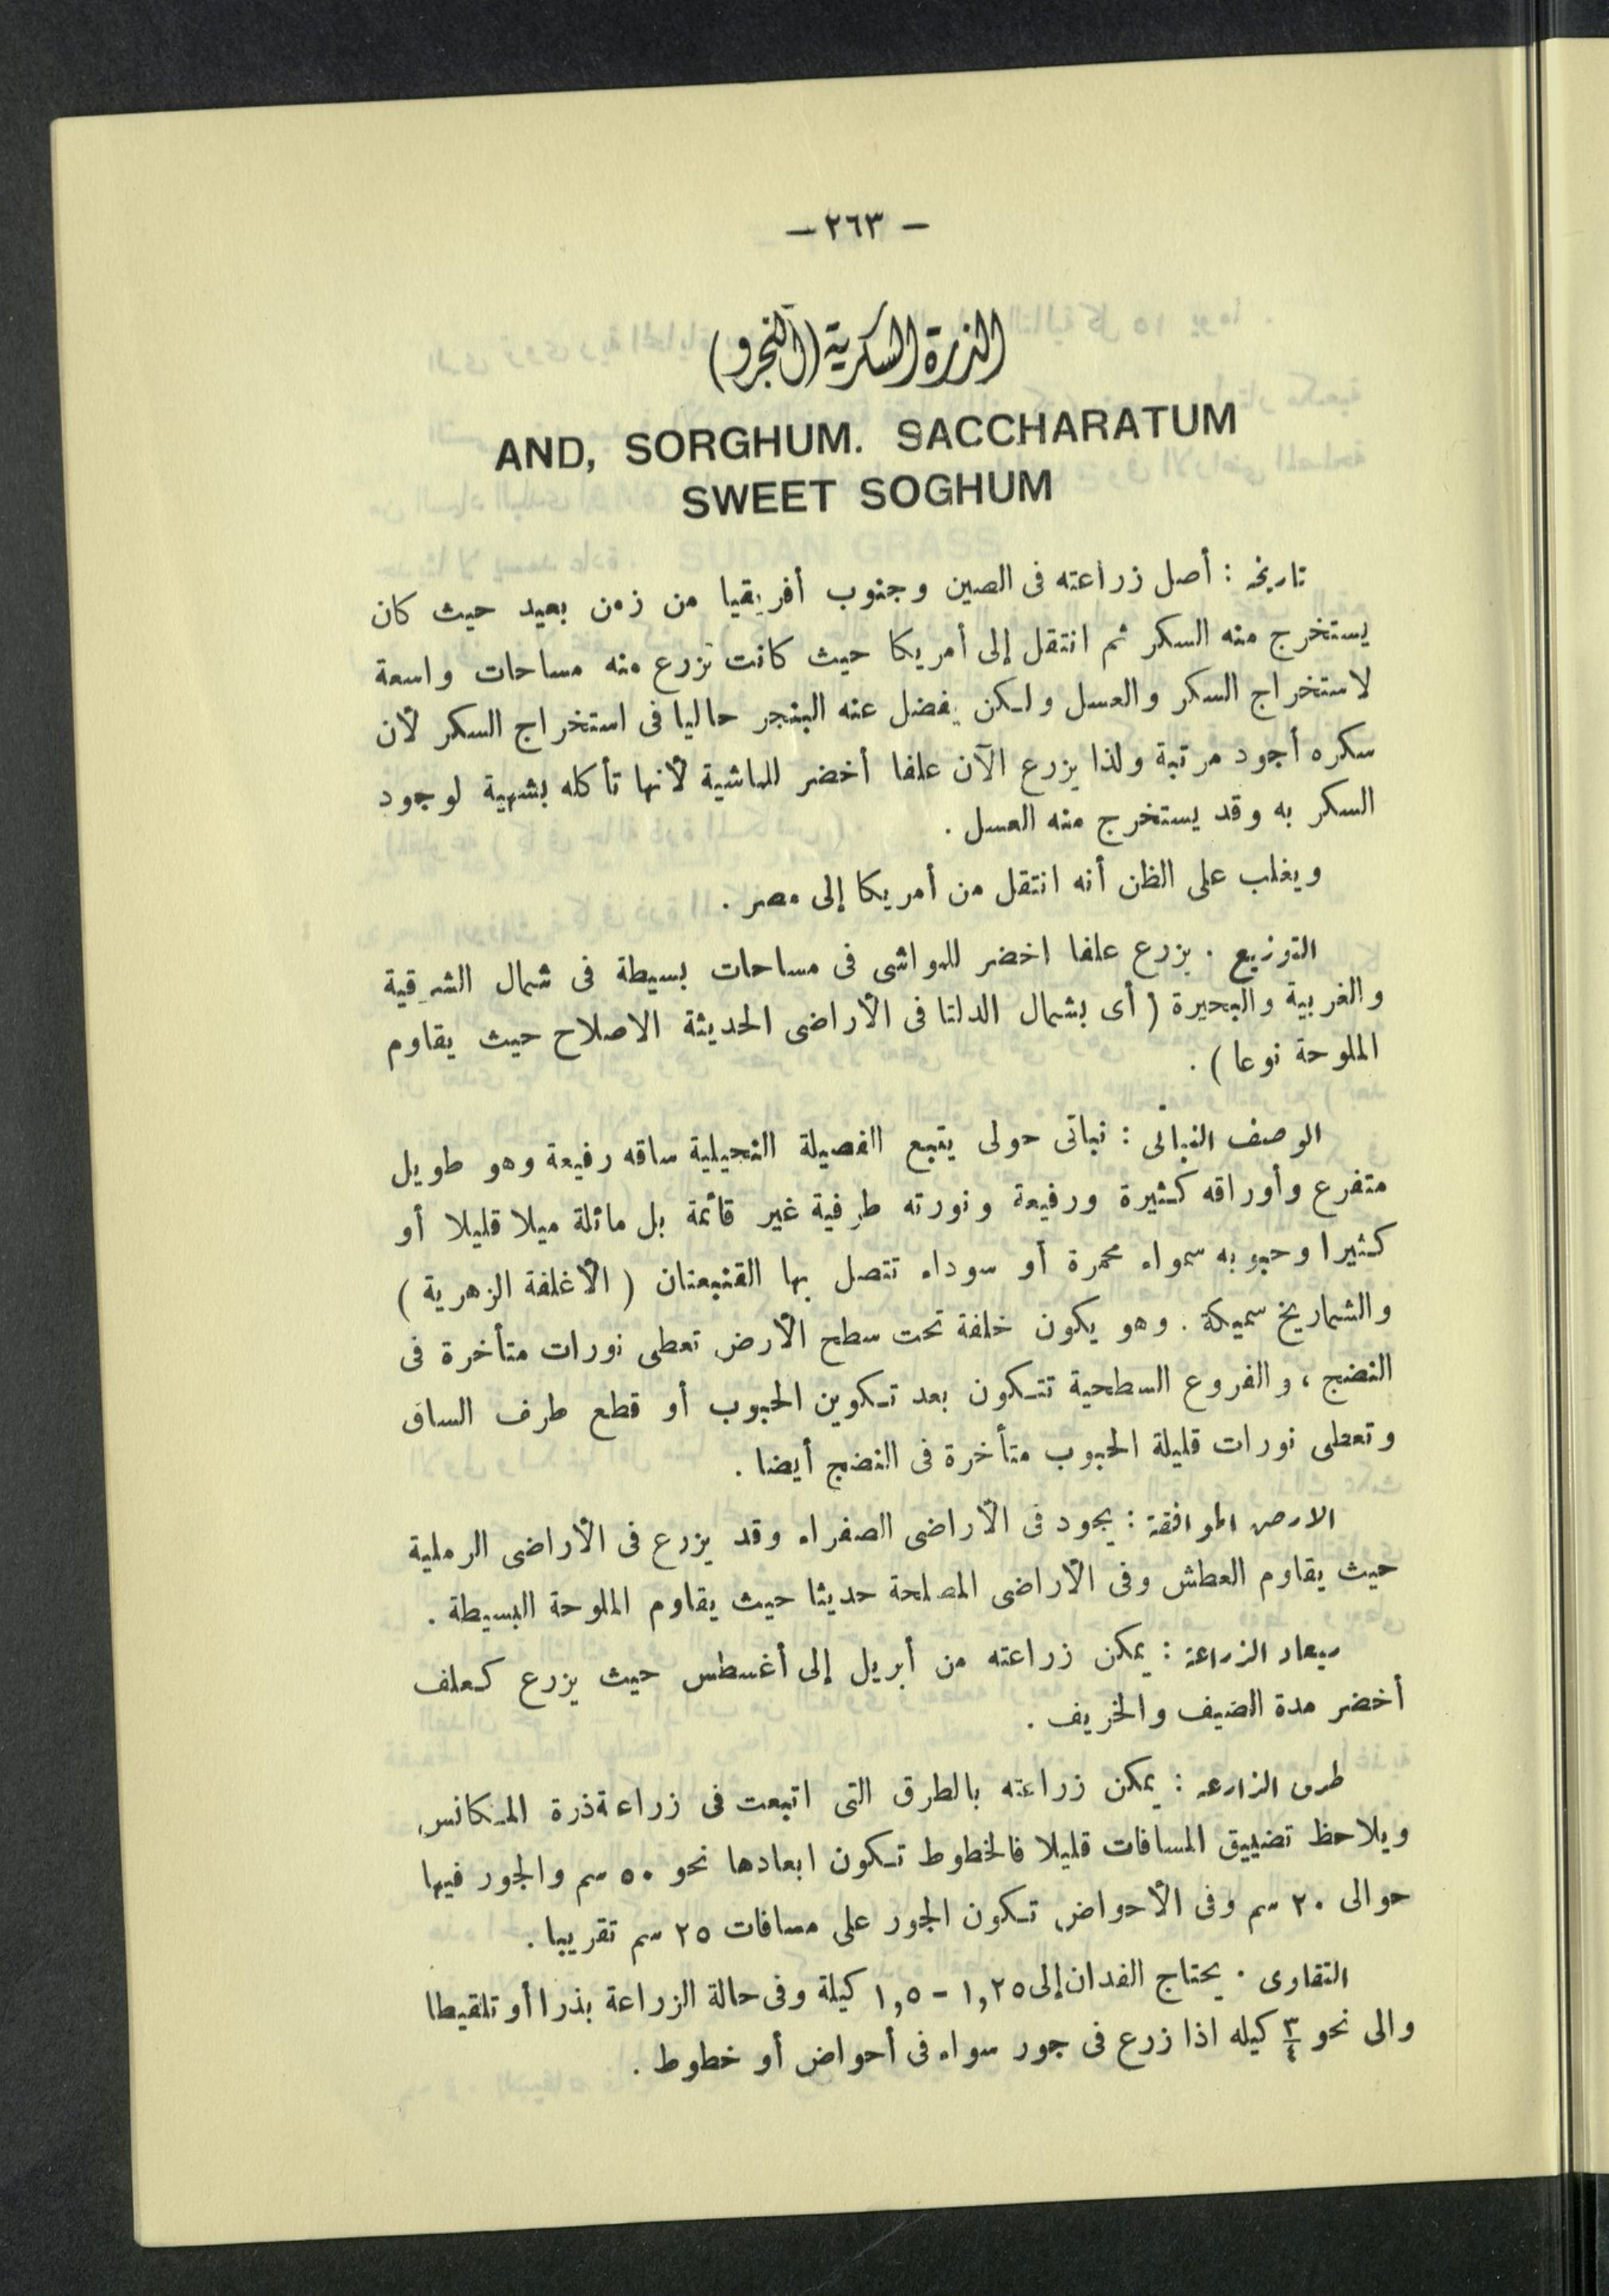 — ٢٦٣ —
الذرة السكرية (النجرو)
AND, SORGHUM. SACCHARATUM
SWEET SOGHUM
تاريخه : أصل زراعته فى الصين وجنوب أفريقيا من زمن بعيد حيث كان
يستخرج منه السكر ثم انتقل إلى أمريكا حيث كانت تزرع منه مساحات واسعة
لاستخراج السكر والعسل ولكن يفضل عنه البنجر حاليا فى استخراج السكر لأن
سكره أجود مرتبة ولذا يزرع الآن علفا أخضر للماشية لأنها تأكله بشهية لوجود
السكر به وقد يستخرج منه العسل .
ويغلب على الظن أنه انتقل من أمريكا إلى مصر .
التوزيع . يزرع علفا اخضر للمواشى فى مساحات بسيطة فى شمال الشرقية
والغربية والبحيرة ( أى بشمال الدلتا فى الأراضى الحديثة الاصلاح حيث يقاوم
الملوحة نوعا ) .
الوصف النباتى : نباتى حولى يتبع الفصيلة النجيلية ساقه رفيعة وهو طويل
متفرع وأوراقه كثيرة ورفيعة ونورته طرفية غير قائمة بل مائلة ميلا قليلا أو
كثيرا وحبوبه سمراء محمرة أو سوداء تتصل بها القنبعتان ( الأغلفة الزهرية )
والشماريخ سميكة . وهو يكون خلفة تحت سطح الأرض تعطى نورات متأخرة فى
النضج ، والفروع السطحية تتكون بعد تكوين الحبوب أو قطع طرف الساق
وتعطى نورات قليلة الحبوب متأخرة فى النضج أيضا .
الارض الموافقة : يجود فى الأراضى الصفراء وقد يزرع فى الأراضى الرملية
حيث يقاوم العطش وفى الأراضى المصلحة حديثا حيث يقاوم الملوحة البسيطة .
ميعاد الزراعة : يمكن زراعته من أبريل إلى أغسطس حيث يزرع كعلف
أخضر مدة الضيف والخريف .
طرق الزارعه : يمكن زراعته بالطرق التى اتبعت فى زراعة ذرة المكانس
ويلاحظ تضييق المسافات قليلا فالخطوط تكون ابعادها نحو ٥٠ سم والجور فيها
حوالى ٢٠ سم وفى الأحواض تكون الجور على مسافات ٢٥ سم تقريبا .
التقاوى . يحتاج الفدان إلى ١,٢٥ - ١,٥ كيلة وفى حالة الزراعة بذرا أو تلقيطا
والى نحو ٣/٤ كيله اذا زرع فى جور سواء فى أحواض أو خطوط .